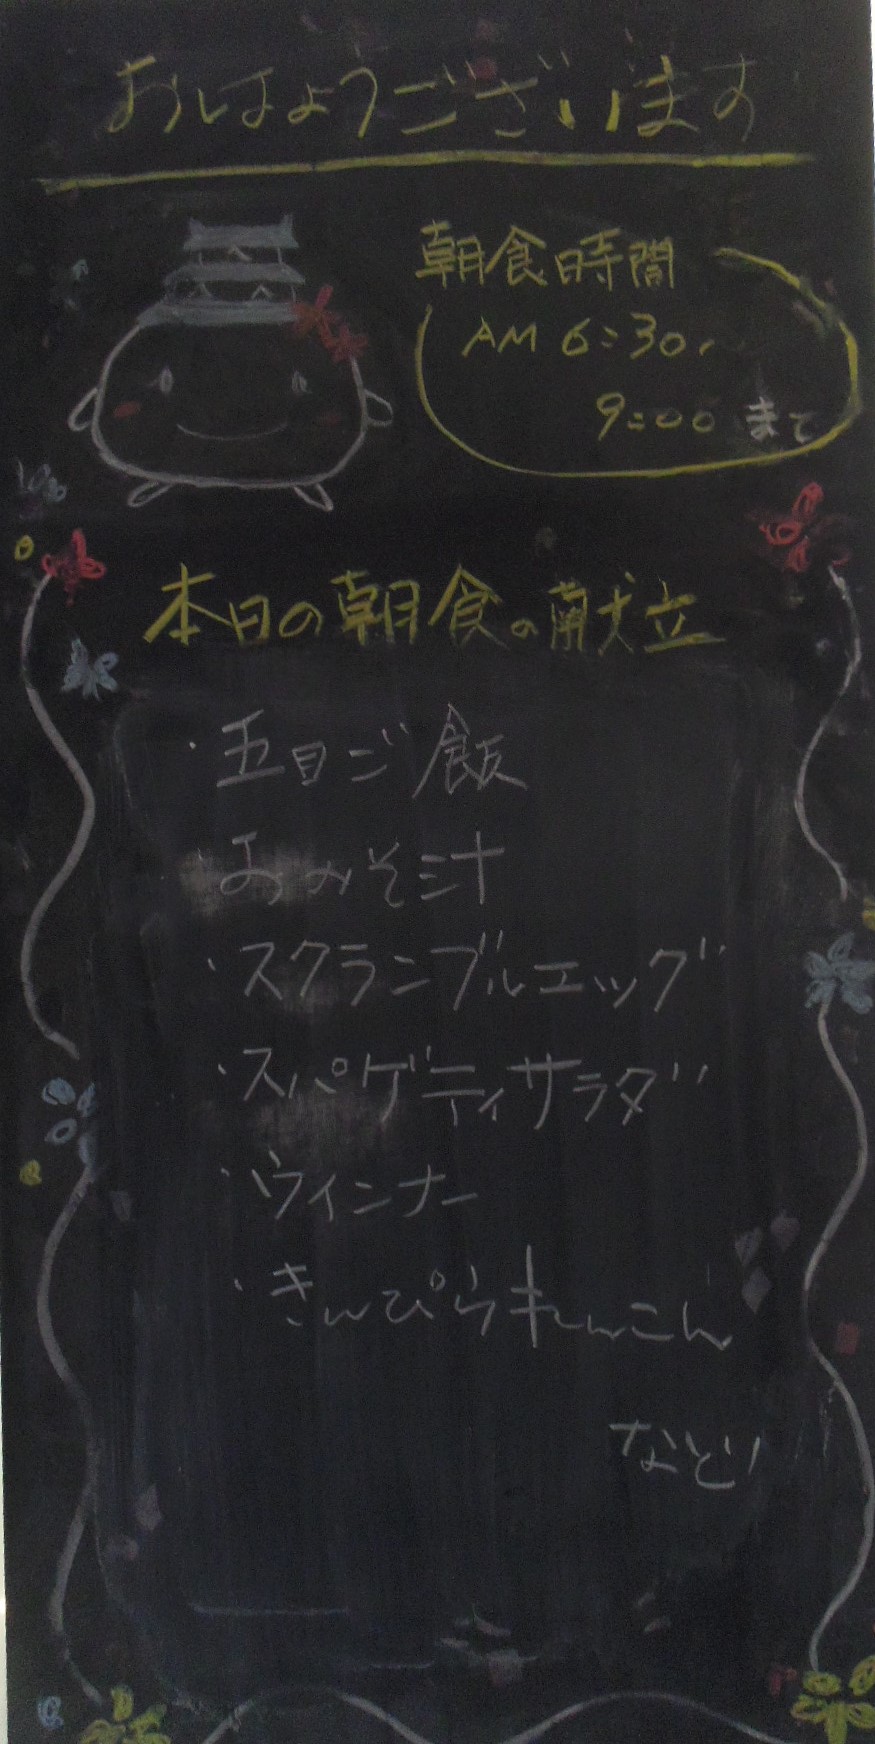 おはようございます
朝食時間
AM 6:30〜
9:00 まで
本日の朝食の献立
・五目ご飯
・おみそ汁
・スクランブルエッグ
・スパゲティサラダ
・ウインナー
・きんぴられんこん
など